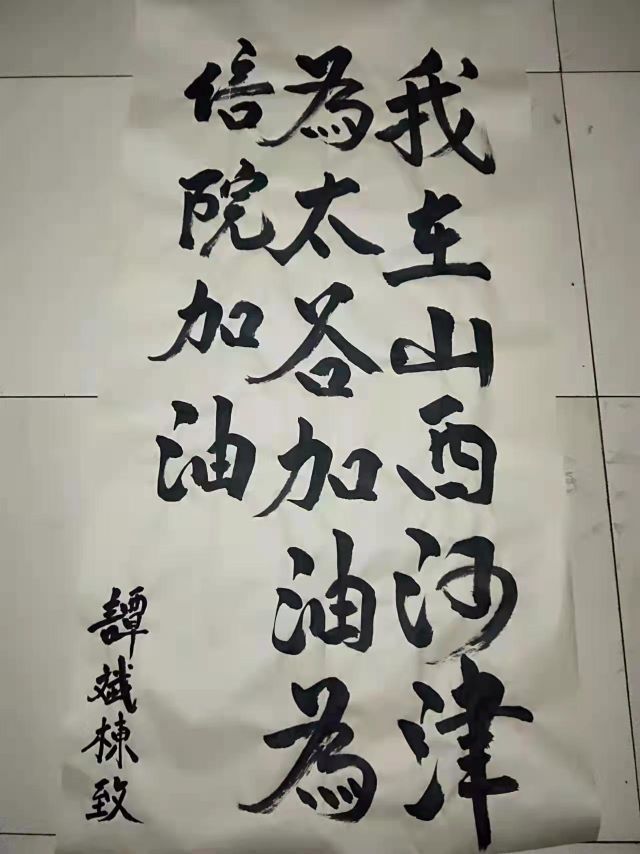 我在山西河津
為太谷加油為
信院加油
譚斌棟致